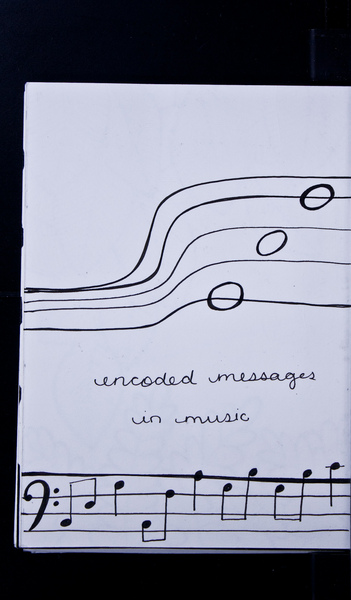 encoded messages
in music